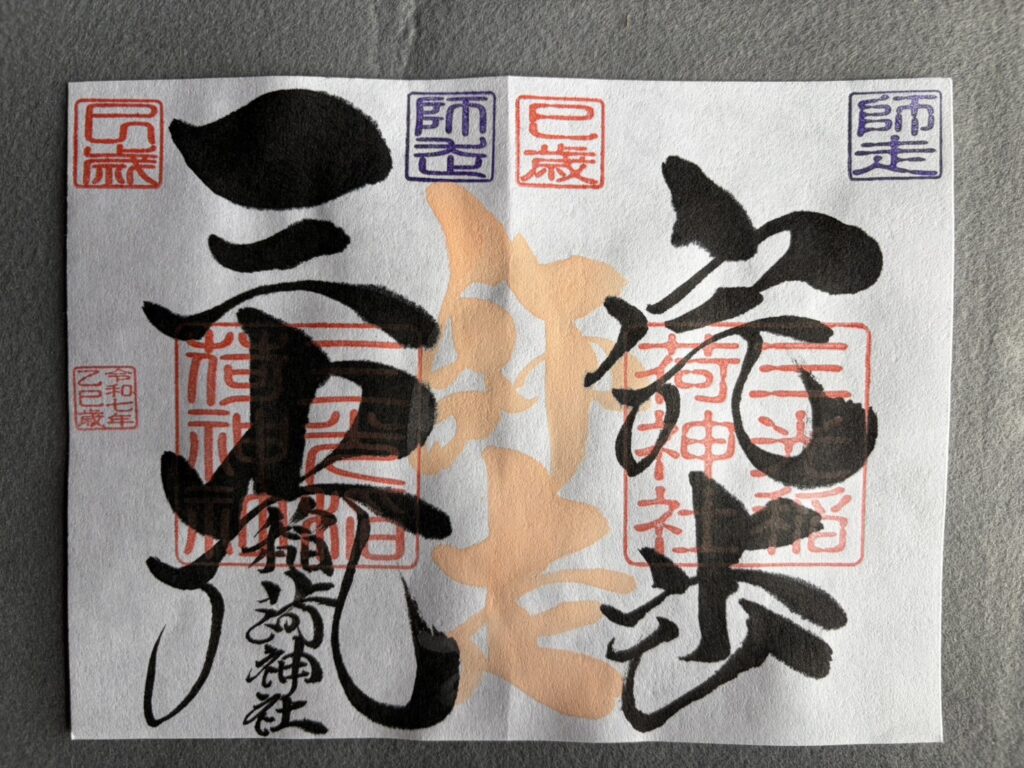 師走
完歩
三光稲荷神社
巳歳
師走
師走
三光
稲荷神社
三光稲荷神社
巳歳
令和七年
乙巳歳